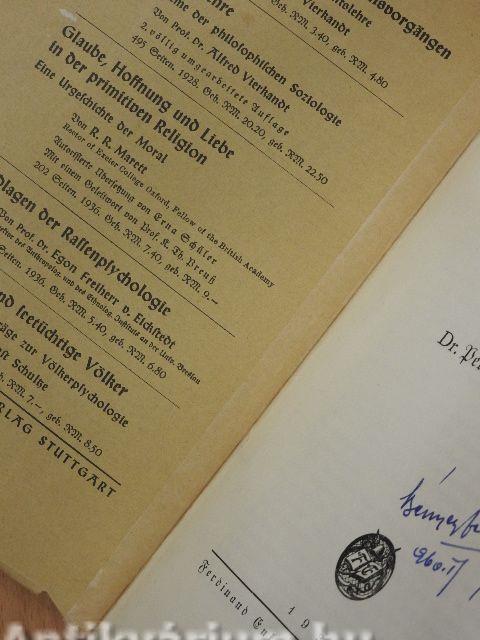 nsvorgängen
ntslehre
Geh. RM. 3,40, geb. RM. 4.80
hre
me der philosophischen Soziologie
Von Prof. Dr. Alfred Vierkandt
2. völlig umgearbeitete Auflage
495 Seiten. 1928. Geh. RM. 20.20, geb. RM. 22.50
Glaube, Hoffnung und Liebe
in der primitiven Religion
Eine Urgeschichte der Moral
Von R. R. Marett
Rector of Exeter College Oxford, Fellow of the British Academy
Autorisierte Übersetzung von Erna Schüler
Mit einem Geleitwort von Prof. K. Th. Preuß
202 Seiten. 1936. Geh. RM. 7.40, geb. RM. 9.–
dlagen der Rassenpsychologie
Von Prof. Dr. Egon Freiherr v. Eickstedt
Anthropolog. und des Ethnolog. Instituts an der Univ. Breslau
Seiten. 1936. Geh. RM. 5.40, geb. RM. 6.80
nd seetüchtige Völker
äge zur Völkerpsychologie
st Schulze
RM. 7.–, geb. RM. 8.50
RLAG STUTTGART
Dr. Pe
19
Ferdinand Enk
Antikvárium.hu